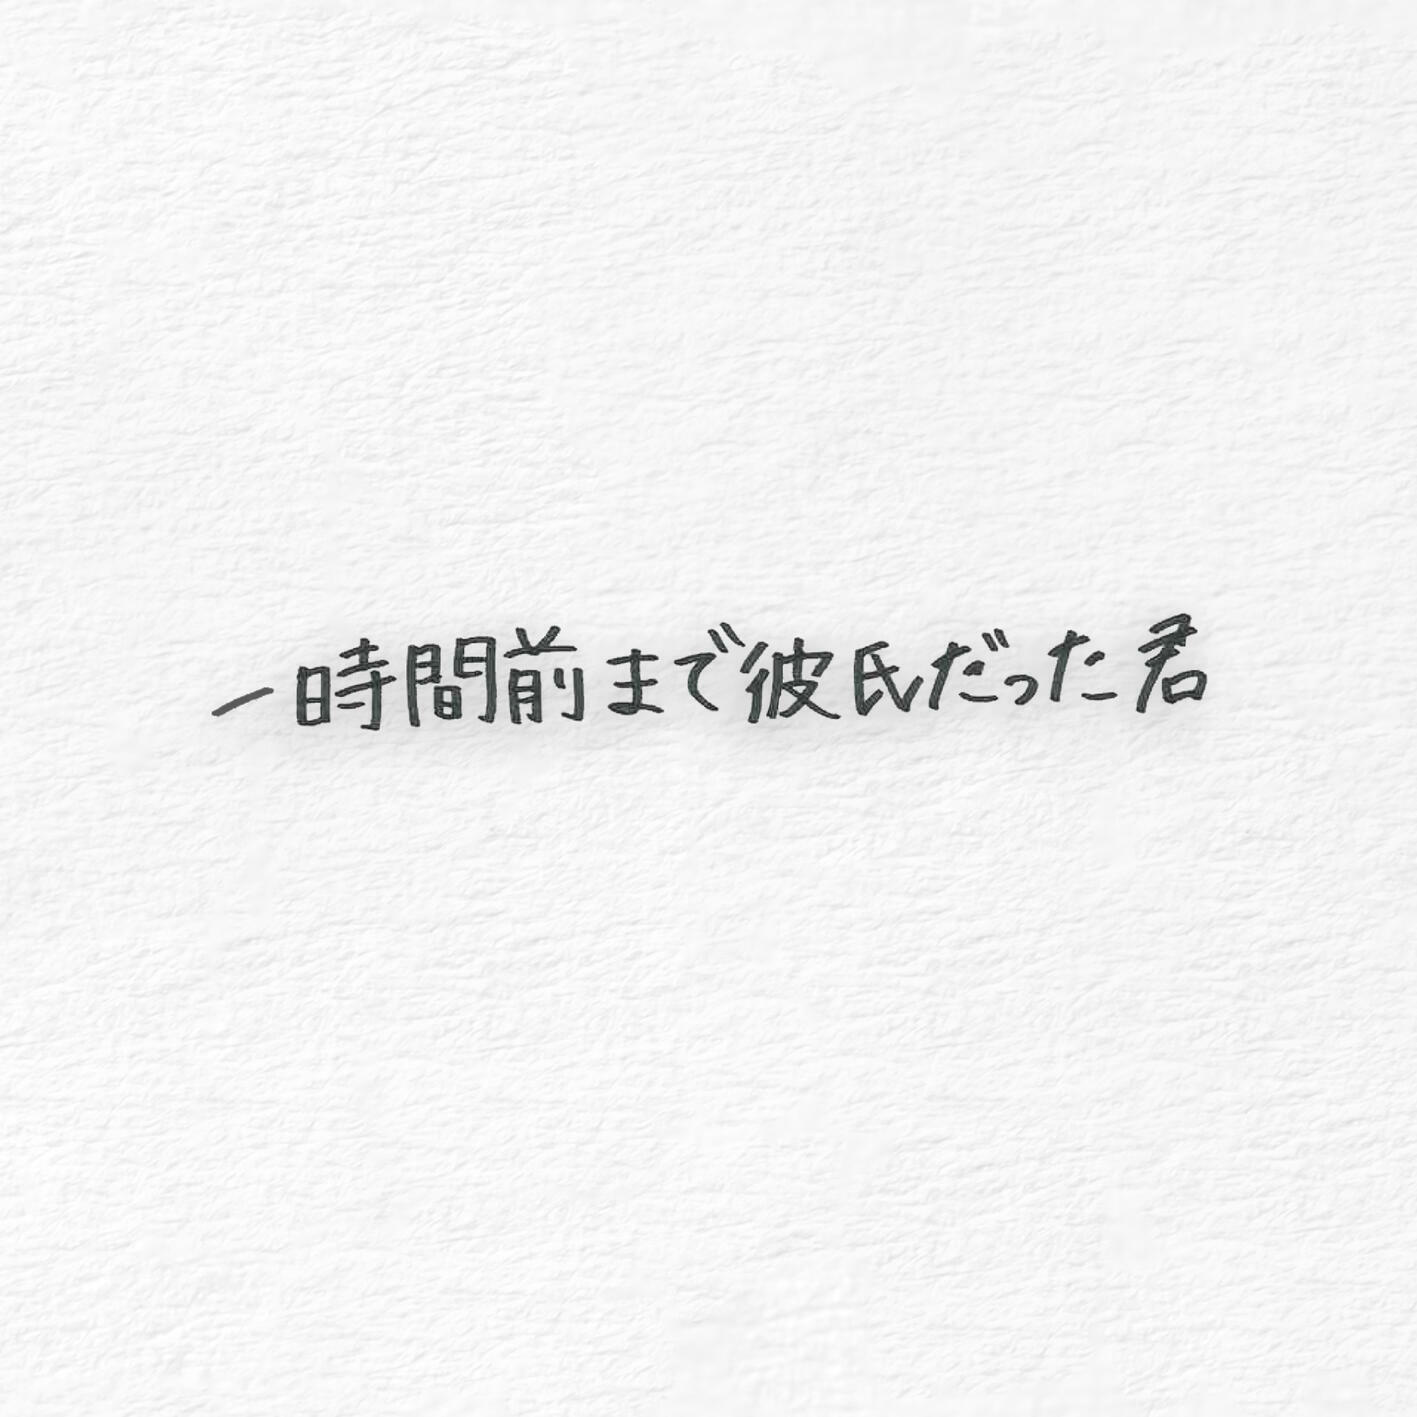 一時間前まで彼氏だった君